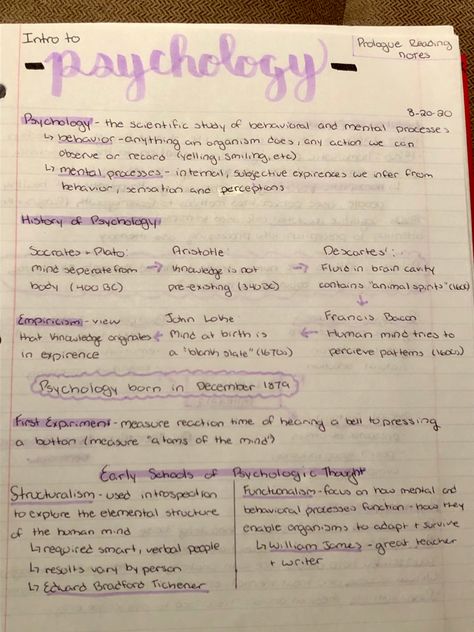 Intro to
psychology
Prologue Reading
notes
8-20-20
Psychology - the scientific study of behavioral and mental processes
↳ behavior - anything an organism does, any action we can
observe or record (yelling, smiling, etc)
↳ mental processes - internal, subjective expirences we infer from
behavior, sensation and perceptions
History of Psychology
Socrates + Plato:
mind seperate from
body (400 BC)
→
Aristotle:
knowledge is not
pre-existing (340 BC)
→
Descartes:
Fluid in brain cavity
contains "animal spirits" (1600)
↓
Francis Bacon
Human mind tries to
percieve patterns (1600s)
←
John Loke
Mind at birth is
a "blank slate" (1670s)
←
Empiricism - view
that knowledge originates
in expirence
Psychology born in December 1879
First Experiment - measure reaction time of hearing a bell to pressing
a button (measure "atoms of the mind")
Early Schools of Psychologic Thought
Structuralism - used introspection
to explore the elemental structure
of the human mind
↳ required smart, verbal people
↳ results vary by person
↳ Edward Bradford Tichener
Functionalism - focus on how mental and
behavioral processes function - how they
enable organisms to adapt + survive
↳ William James - great teacher
+ writer